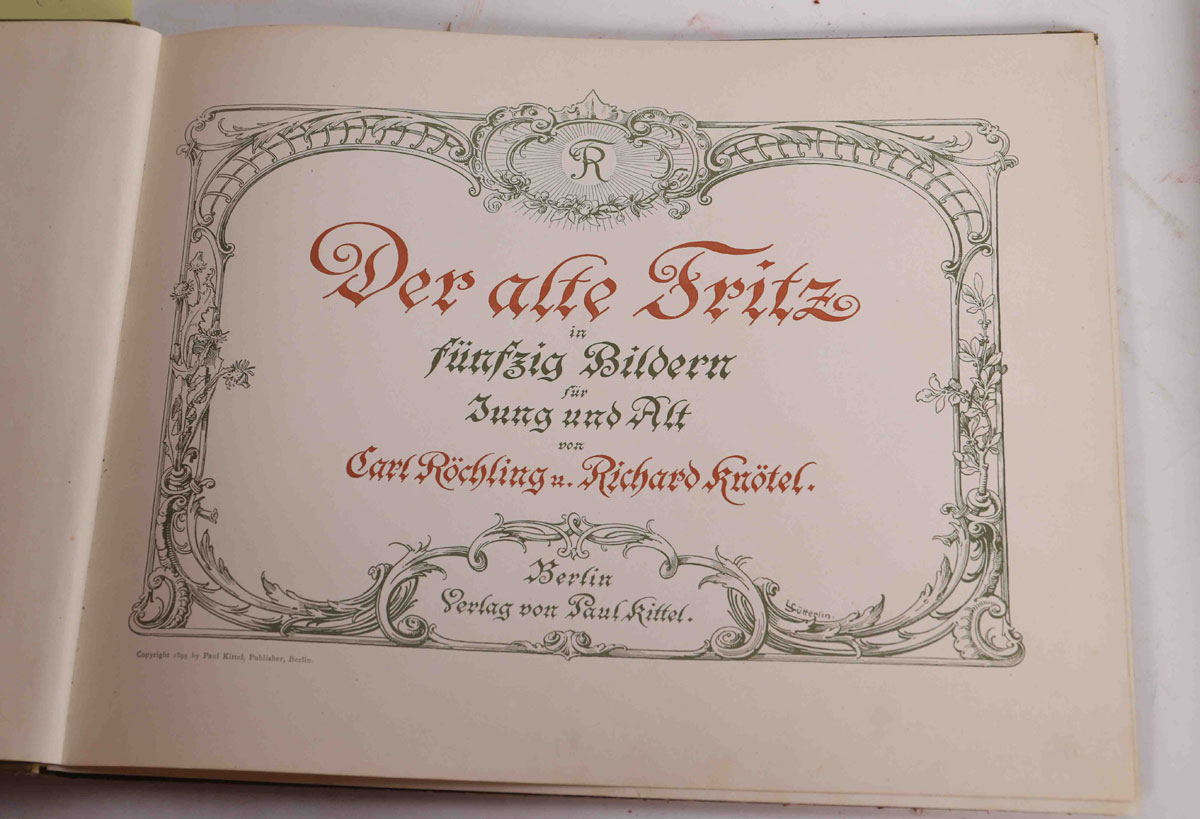 R
Der alte Fritz
in
fünfzig Bildern
für
Jung und Alt
von
Carl Röchling u. Richard Knötel.
Berlin
Verlag von Paul Kittel.
LSütterlin.
Copyright 1895 by Paul Kittel, Publisher, Berlin.